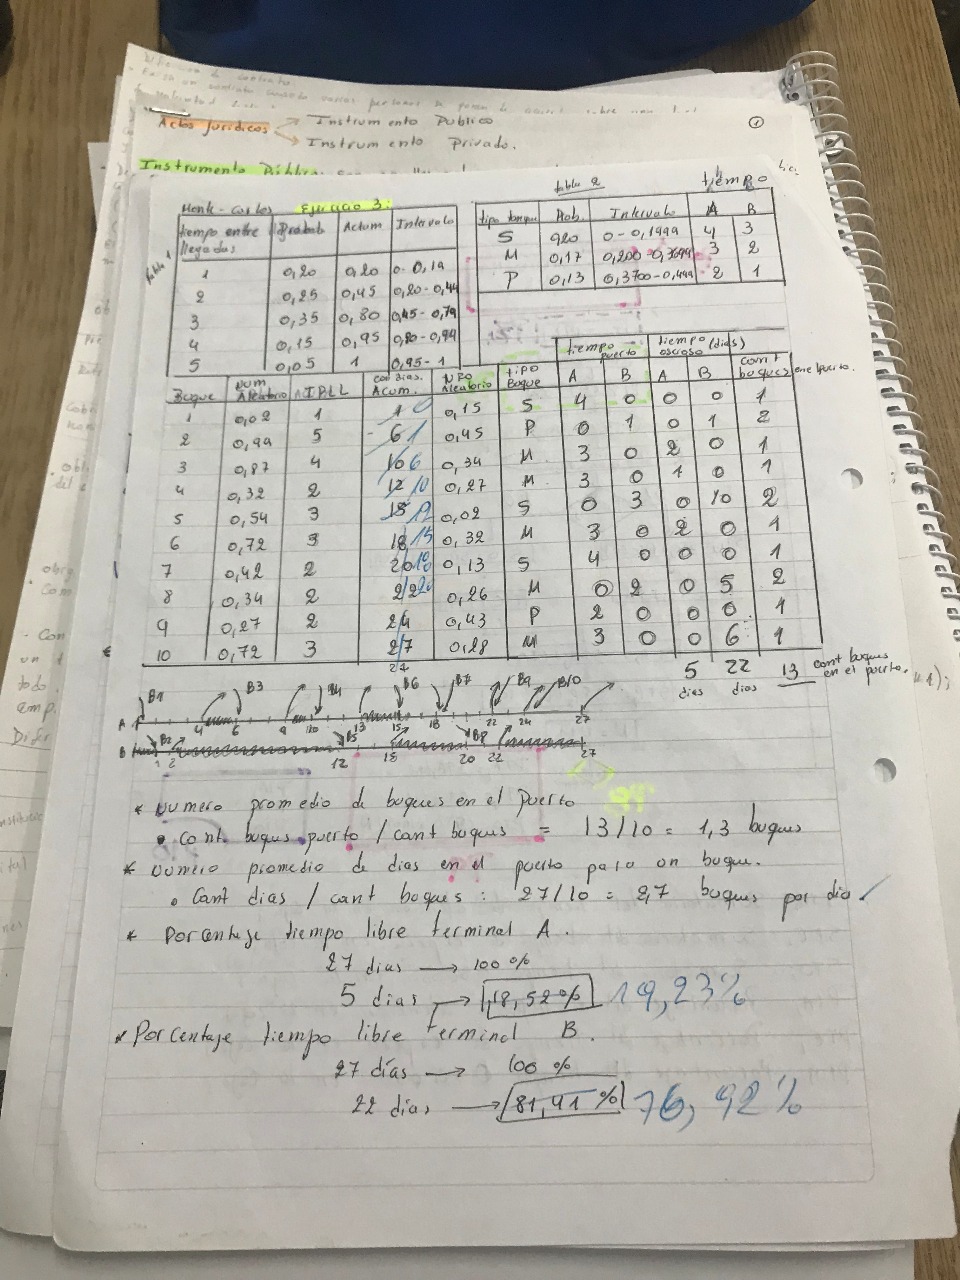 Actos Jurídicos
Instrumento Publico
Instrumento Privado.
1
Instrumento Público
Monte-Carlos Ejercicio 3:
tabla 1
tiempo entre llegadas Probab Acum Intervalo
1 0,20 0,20 0-0,19
2 0,25 0,45 0,20-0,44
3 0,35 0,80 0,45-0,79
4 0,15 0,95 0,80-0,94
5 0,05 1 0,95-1
tabla 2
tiempo
tipo tanque Prob. Intervalo A B
S 0,20 0-0,1999 4 3
M 0,17 0,200-0,3699 3 2
P 0,13 0,3700-0,4999 2 1
tiempo puerto tiempo ocioso (dias)
Buque Num Aleatorio IPLL con dias. Acum. NRO Aleatorio tipo Buque A B A B cant buques en el puerto.
1 0,02 1 1 0 0,15 S 4 0 0 0 1
2 0,99 5 6 1 0,45 P 0 1 0 1 2
3 0,87 4 10 6 0,34 M 3 0 2 0 1
4 0,32 2 12 10 0,27 M 3 0 1 0 1
5 0,54 3 15 12 0,02 S 0 3 0 10 2
6 0,72 3 18 15 0,32 M 3 0 2 0 1
7 0,42 2 20 18 0,13 S 4 0 0 0 1
8 0,34 2 22 20 0,26 M 0 2 0 5 2
9 0,27 2 24 0,43 P 2 0 0 0 1
10 0,72 3 27 0,28 M 3 0 0 6 1
27
5 dias 22 dias 13 cant buques en el puerto.
B1 B3 B4 B6 B7 B9 B10
A 4 6 9 10 13 15 18 22 24 27
B B2 B5 B8
1 2 12 15 20 22 27
* Numero promedio de buques en el Puerto
• Cant. buques puerto / cant buques = 13/10 = 1,3 buques
* Numero promedio de dias en el puerto para un buque.
• Cant dias / cant buques : 27/10 = 2,7 buques por dia
* Porcentaje tiempo libre terminal A.
27 dias → 100 %
5 dias → 18,52% 19,23%
* Porcentaje tiempo libre terminal B.
27 días → 100 %
22 dias → 81,41 % 76,92%